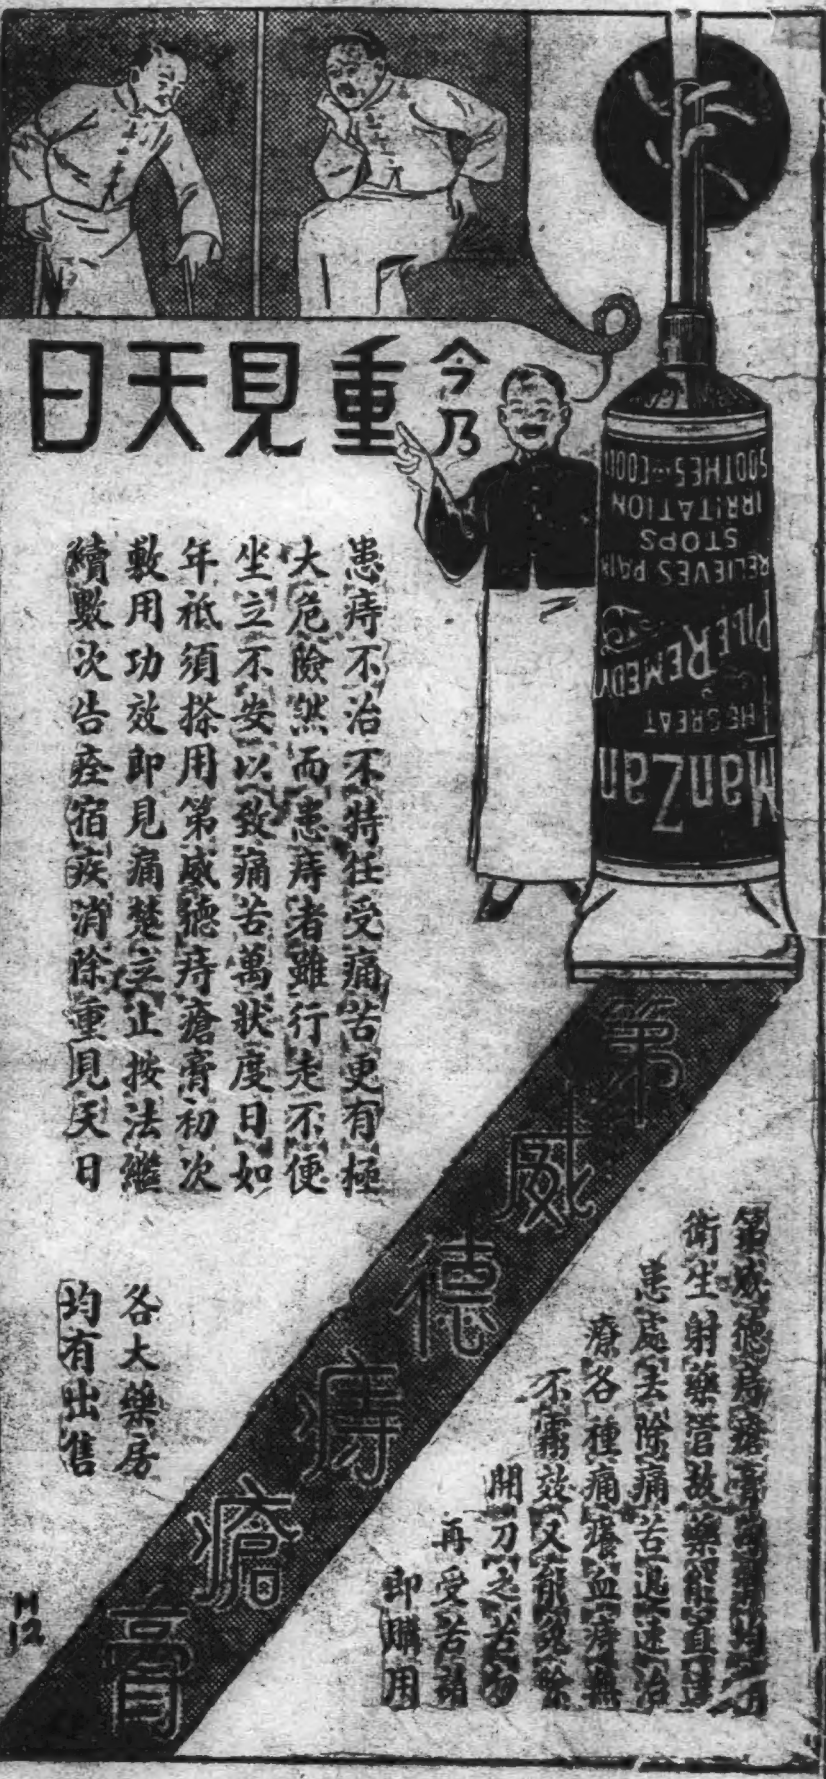 今乃
重見天日
ManZan
THE GREAT
PILE REMEDY
RELIEVES PAIN
STOPS
IRRITATION
SOOTHES COOLS
患痔不治不特任受痛苦更有極
大危險然而患痔者雖行走不便
坐立不安以致痛苦萬狀度日如
年祇須搽用第威德痔瘡膏初次
敷用功效即見痛楚立止按法繼
續數次告痊宿疾消除重見天日
第威德痔瘡膏
第威德痔瘡膏每銷均
衛生射藥管故藥能直達
患處去除痛苦迅速治
療各種痛癢血痔無
不靈效又能免除
開刀之苦勿
再受苦請
即購用
各大藥房
均有出售
H
12